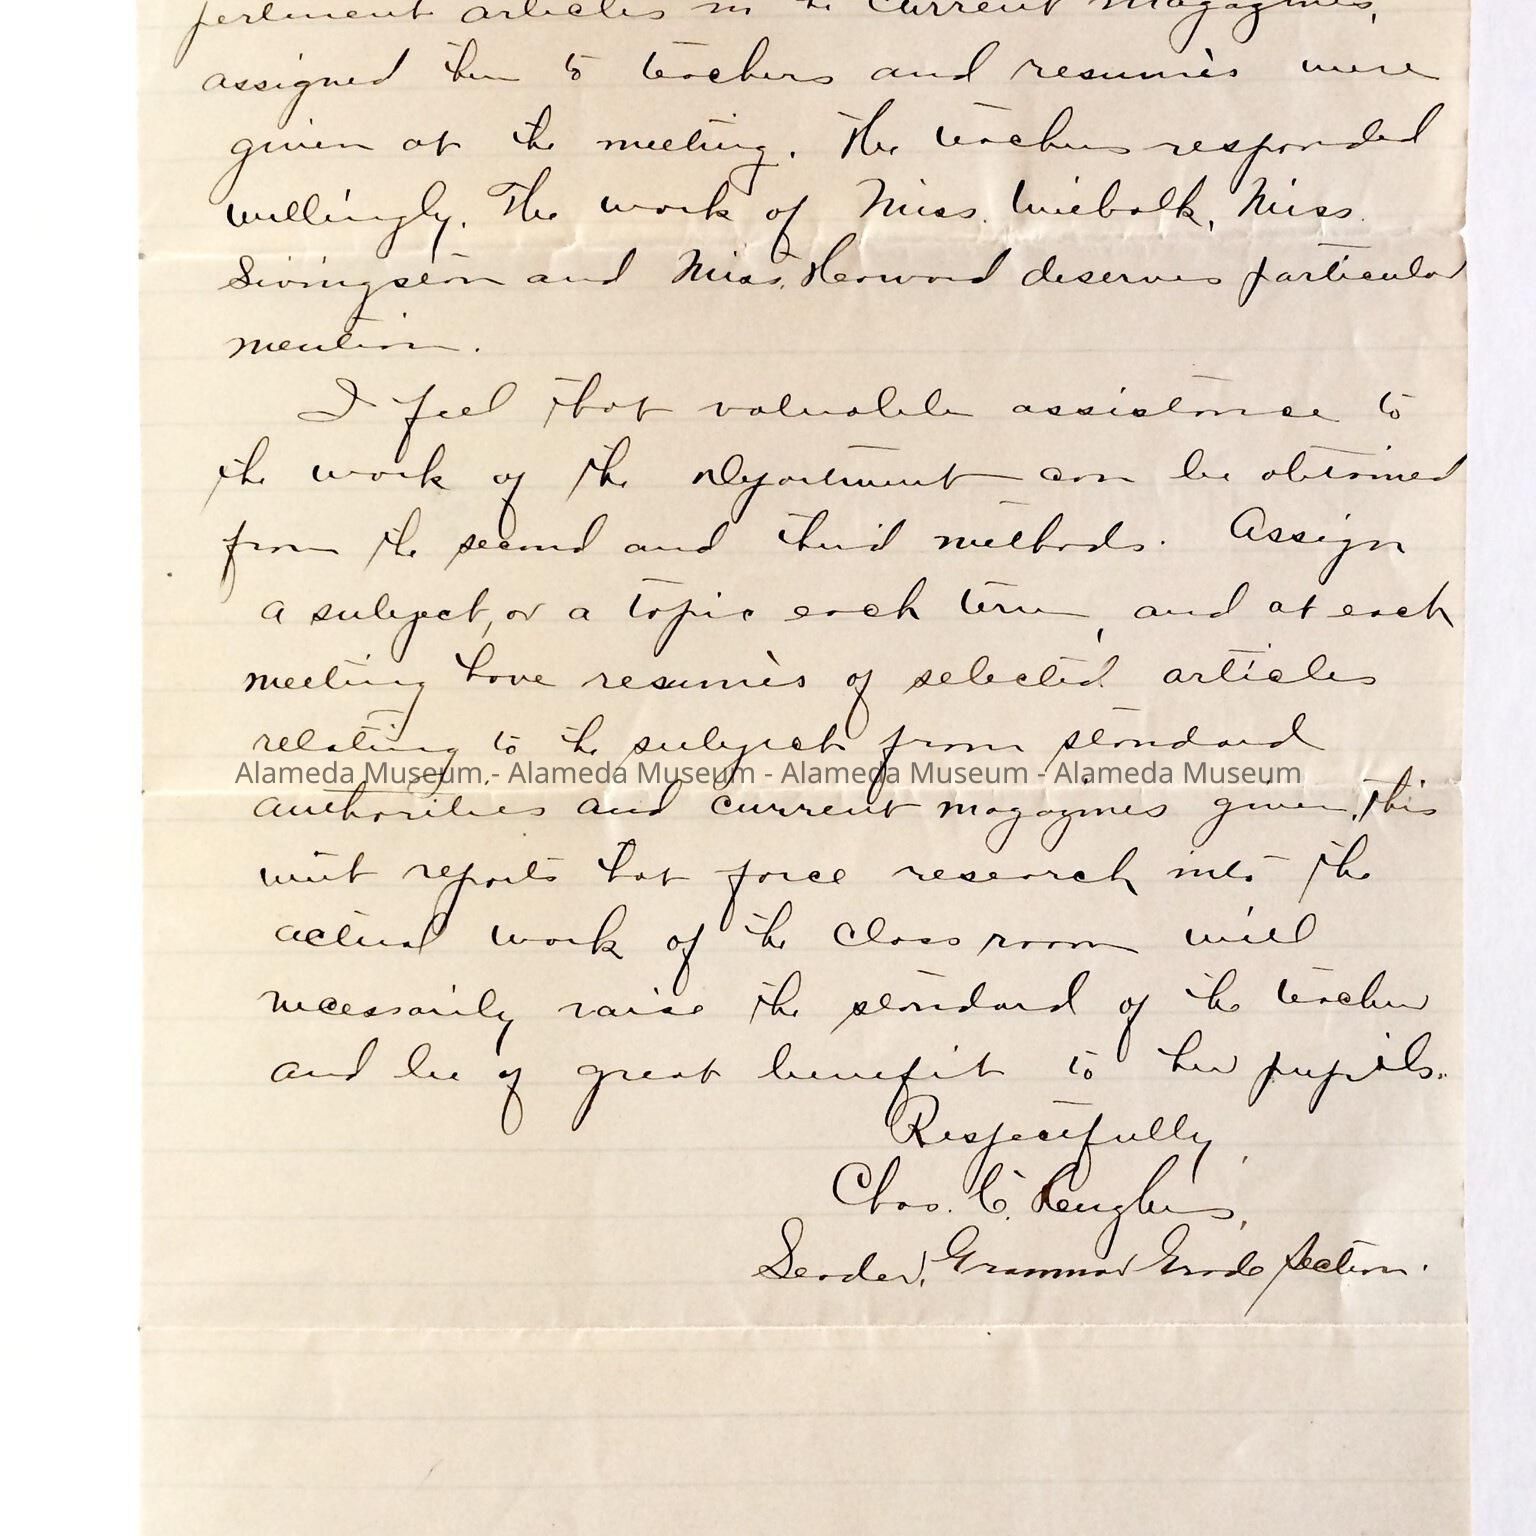 pertinent articles in the current magazines,
assigned them to teachers and resumès were
given at the meeting. The teachers responded
willingly. The work of Miss. Wiebalk, Miss.
Livingston and Miss. Harward deserves particular
mention.
I feel that valuable assistance to
the work of the Department can be obtained
from the second and third methods. Assign
a subject, or a topic each term, and at each
meeting have resumès of selected articles
relating to the subject from standard
Alameda Museum - Alameda Museum - Alameda Museum - Alameda Museum
authorities and current magazines given. This
with reports that force research into the
actual work of the class room will
necessarily raise the standard of the teacher
and be of great benefit to her pupils.
Respectfully,
Chas. C. Hughes,
Leader, Grammar Grade Section.